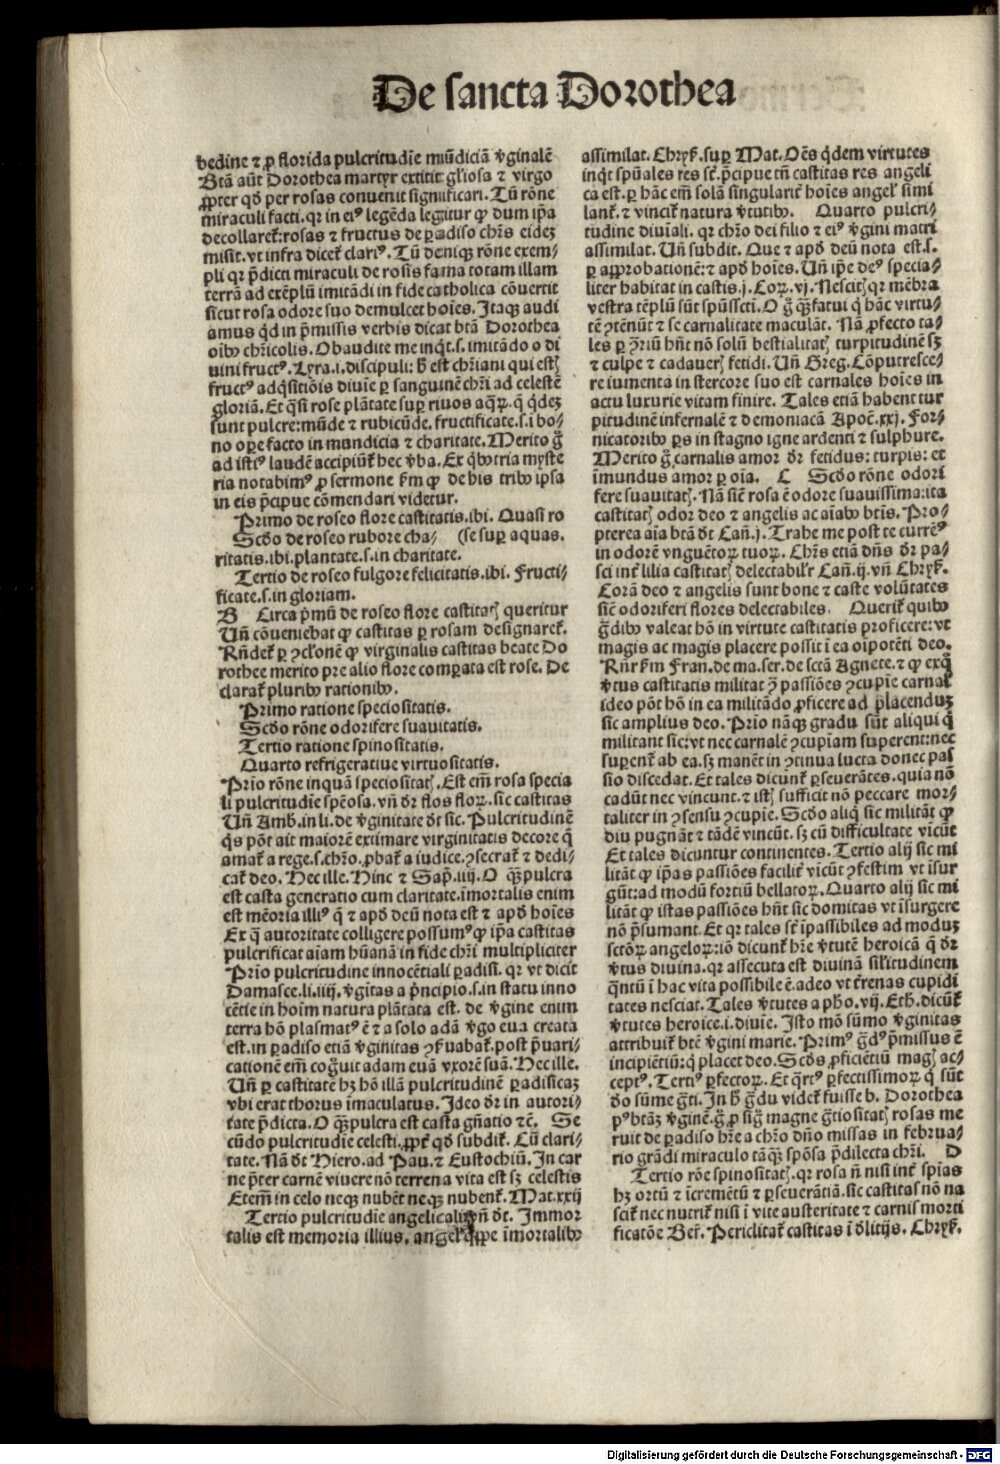 De sancta Dorothea
bedine ⁊ ꝓ florida pulcritudīe mūdiciā v̄ginalē
Btā aūt Dorothea martyr extitit gl'iosa ⁊ virgo
ꝓpter qd̄ per rosas convenit significari. Tū rōne
miraculi facti. qꝛ in eiꝰ legēda legitur ꝙ dum ip̄a
decollareť: rosas ⁊ fructus de ꝑadiso chr̄s eidez
misit. vt infra diceť clariꝰ. Tū deniqꝫ rōne exem-
pli qꝛ p̄dicti miraculi de rosis fama totam illam
terrā ad exēplū imitādi in fide catholica cōvertit
sicut rosa odore suo demulcet hoīes. Itaqꝫ audi
amus qd̄ in p̄missis verbis dicat btā Dorothea
oībꝰ chr̄icolis. Obaudite me inqt̄. s. imitādo o di
uini fructꝰ. Lyra. i. discipuli: h̄ est chr̄iani qui estꝭ
fructꝰ adqsitiōis diuīe ꝑ sanguinē chr̄i ad celestē
gloriā. Et qsī rose plātate suꝑ riuos aqꝝ. q̄ qdeꝫ
sunt pulcre: mūde ⁊ rubicūde. fructificate. s. i bo-
no oꝑe facto in mundicia ⁊ charitate. Merito g̊
ad istiꝰ laudē accipiūť hec v̄ba. Ex qbꝰ tria myste
ria notabimꝰ ꝓ sermone ẜm ꝙ de his tribꝰ ipsa
in eis p̄cipue cōmendari videtur.
Primo de roseo flore castitatis. ibi. Quasi ro
Scd̄o de roseo rubore cha- (se suꝑ aquas.
ritatis. ibi. plantate. s. in charitate.
Tertio de roseo fulgore felicitatis. ibi. Fructi-
ficate. s. in gloriam.
B Circa p̄mū de roseo flore castitatꝭ queritur
Uñ cōueniebat ꝙ castitas ꝑ rosam designareť.
Rñdeť ꝑ ꝯclonē ꝙ virginalis castitas beate Do
rothee merito pre alio flore comꝑata est rose. De
clarať pluribꝰ rationibꝰ.
Primo ratione speciositatis.
Scd̄o rōne odorifere suauitatis.
Tertio ratione spinositatis.
Quarto refrigeratiue virtuositatis.
Prīo rōne inquā speciositatꝭ. Est em̄ rosa specia
li pulcritudīe spēosa. vñ dr̄ flos floꝝ. sic castitas
Uñ Amb. in li. de v̄ginitate dt̄ sic. Pulcritudinē
qs̄ pōt ait maiorē extimare virginitatis decore q̄
amať a rege. s. chr̄o. ꝓbať a iudice. ꝯsecrať ⁊ dedi-
cať deo. Hec ille. Hinc ⁊ Sap̄. iiij. O qꝫ pulcra
est casta generatio cum claritate. īmortalis enim
est mēoria illiꝰ q̄ ⁊ apd̄ deū nota est ⁊ apd̄ hoīes
Ex q̄ autoritate colligere possumꝰ ꝙ ip̄a castitas
pulcrificat aīam hūanā in fide chr̄i multipliciter
Prīo pulcritudine innocētiali ꝑadisi. qꝛ vt dicit
Damasce. li. iiij. v̄gītas a p̄ncipio. s. in statu inno
cētie in hoīm natura plātata est. de v̄gine enim
terra hō plasmatꝰ ē ⁊ a solo adā v̄go eua creata
est. in ꝑadiso etiā v̄ginitas ꝯẜuabať. post p̄uari-
cationē em̄ cog̊uit adam euā vxorē suā. Hec ille.
Uñ ꝑ castitatē hꝫ hō illā pulcritudinē ꝑadisicaꝫ
vbi erat thorus īmaculatus. Ideo dr̄ in autori-
tate p̄dicta. O qꝫ pulcra est casta gñatio ⁊c̄. Se
cūdo pulcritudīe celesti. ꝓpť qd̄ subdiť. Cū clari-
tate. Nā dt̄ Hiero. ad Pau. ⁊ Eustochiū. In car
ne p̄ter carnē viuere nō terrena vita est sꝫ celestis
Etem̄ in celo neqꝫ nubēt neqꝫ nubenť. Mat. xxij
Tertio pulcritudīe angelicali vñ dt̄. Immor
talis est memoria illius. īmortalibꝰ
assimilat. Chryẜ. suꝑ Mat. Oēs qdem virtutes
inqt̄ spūales res sť. p̄cipue tñ castitas res angeli
ca est. ꝑ hāc em̄ solā singulariť hoīes angeľ simi
lanť. ⁊ vinciť natura v̄tutibꝰ. Quarto pulcri-
tudine diuīali. qꝛ chr̄o dei filio ⁊ eiꝰ v̄gini matri
assimilat. Uñ subdit. Que ⁊ apd̄ deū nota est. s.
ꝑ aꝓbationē: ⁊ apd̄ hoīes. Uñ ip̄e deꝰ specia-
liter habitat in castis. j. Coꝝ. vj. Nescitꝭ qꝛ mēbra
vestra tēplū sūt spūssctī. O g̊ qꝫ fatui q̄ hāc virtu-
tē ꝯtēnūt ⁊ se carnalitate maculāt. Nā ꝓfecto ta-
les ꝑ ꝯr̄iū hñt nō solū bestialitatꝭ turpitudinē sꝫ
⁊ culpe ⁊ cadauerꝭ fetidi. Uñ Greg. Cōputresce-
re iumenta in stercore suo est carnales hoīes in
actu luxurie vitam finire. Tales etiā habent tur
pitudinē infernalē ⁊ demoniacā Apoc̄. xxj. For-
nicatoribꝰ ꝑs in stagno igne ardenti ⁊ sulphure.
Merito g̊ carnalis amor dr̄ fetidus: turpis: et
īmundus amor ꝑ oīa. C Scd̄o rōne odori
fere suauitatꝭ. Nā sicē rosa ē odore suauissima: ita
castitatꝭ odor deo ⁊ angelis ac aīabꝰ btīs. Pro-
pterea aīa btā dt̄ Cañ. j. Trahe me post te curreꝰ
in odorē vnguētoꝝ tuoꝝ. Chr̄s etiā dñs dr̄ pa-
sci inť lilia castitatꝭ delectabiľr Cañ. ij. vñ Chryẜ.
Corā deo ⁊ angelis sunt bone ⁊ caste volūtates
sicē odoriferi flores delectabiles. Queriť quibꝰ
g̊dibꝰ valeat hō in virtute castitatis ꝓficere: vt
magis ac magis placere possit i ea oīpotēti deo.
Rñr ẜm Fran. de ma. ser. de sctā Agnete. ⁊ ꝙ exq̊
v̄tus castitatis militat ꝯ passiōes ꝯcupīe carnal
ideo pōt hō in ea militādo ꝓficere ad placenduꝫ
sic amplius deo. Prīo nāqꝫ gradu sūt aliqui q̄
militant sic: vt nec carnalē ꝯcupīam superent: nec
suꝑenť ab ea. sꝫ manēt in ꝯtinua lucta donec pas
sio discedat. Et tales dicunť ꝑseuerātes. quia nō
cadūt nec vincunt. ⁊ istꝭ sufficit nō peccare mor-
taliter in ꝯsensu ꝯcupīe. Scd̄o aliq̄ sic militāt ꝙ
diu pugnāt ⁊ tādē vincūt. sꝫ cū difficultate vīcūt
Et tales dicuntur continentes. Tertio alij sic mi
litāt ꝙ ip̄as passiōes faciliť vīcūt ꝯfestim vt īsur
gūt: ad modū fortiū bellatoꝝ. Quarto alij sic mi
litāt ꝙ istas passiōes hñt sic domitas vt īsurgere
nō p̄sumant. Et qꝛ tales sť īpassibiles ad moduꝫ
sctōꝝ angeloꝝ: iō dicunť hr̄e v̄tutē heroicā q̄ dr̄
v̄tus divina. qꝛ assecuta est divinā siľitudinem
qntū i hac vita possibile ē. adeo vt ťrenas cupidi
tates nesciat. Tales v̄tutes a pho. vij. Eth. dicūť
v̄tutes heroice. i. diuīe. Isto mō sūmo v̄ginitas
attribuiť btē v̄gini marie. Primꝰ g̊dꝰ p̄missus ē
incipiētiū: q̄ placet deo. Scd̄s ꝓficiētiū magꝭ ac-
ceptꝰ. Tertiꝰ ꝑfectoꝝ. Et qrtꝰ ꝑfectissimoꝝ q̄ sūt
do sūme g̊ti. In h̄ g̊du videť fuisse b. Dorothea
pꝰ btāꝫ v̄ginē. g̊ ꝓ sig̊ magne g̊tiositatꝭ rosas me
ruit de ꝑadiso hr̄e a chr̄o dño missas in februa-
rio grādi miraculo tāqꝫ spōsa p̄dilecta chr̄i. D
Tertio rōe spinositatꝭ. qꝛ rosa ñ nisi inť spīas
hꝫ ortū ⁊ īcremētū ⁊ ꝑseuerātiā. sic castitas nō na
sciť nec nutriť nisi i vite austeritate ⁊ carnis morti
ficatōe Beř. Periclitať castitas i dľitijs. Chryẜ.
Digitalisierung gefördert durch die Deutsche Forschungsgemeinschaft - DFG